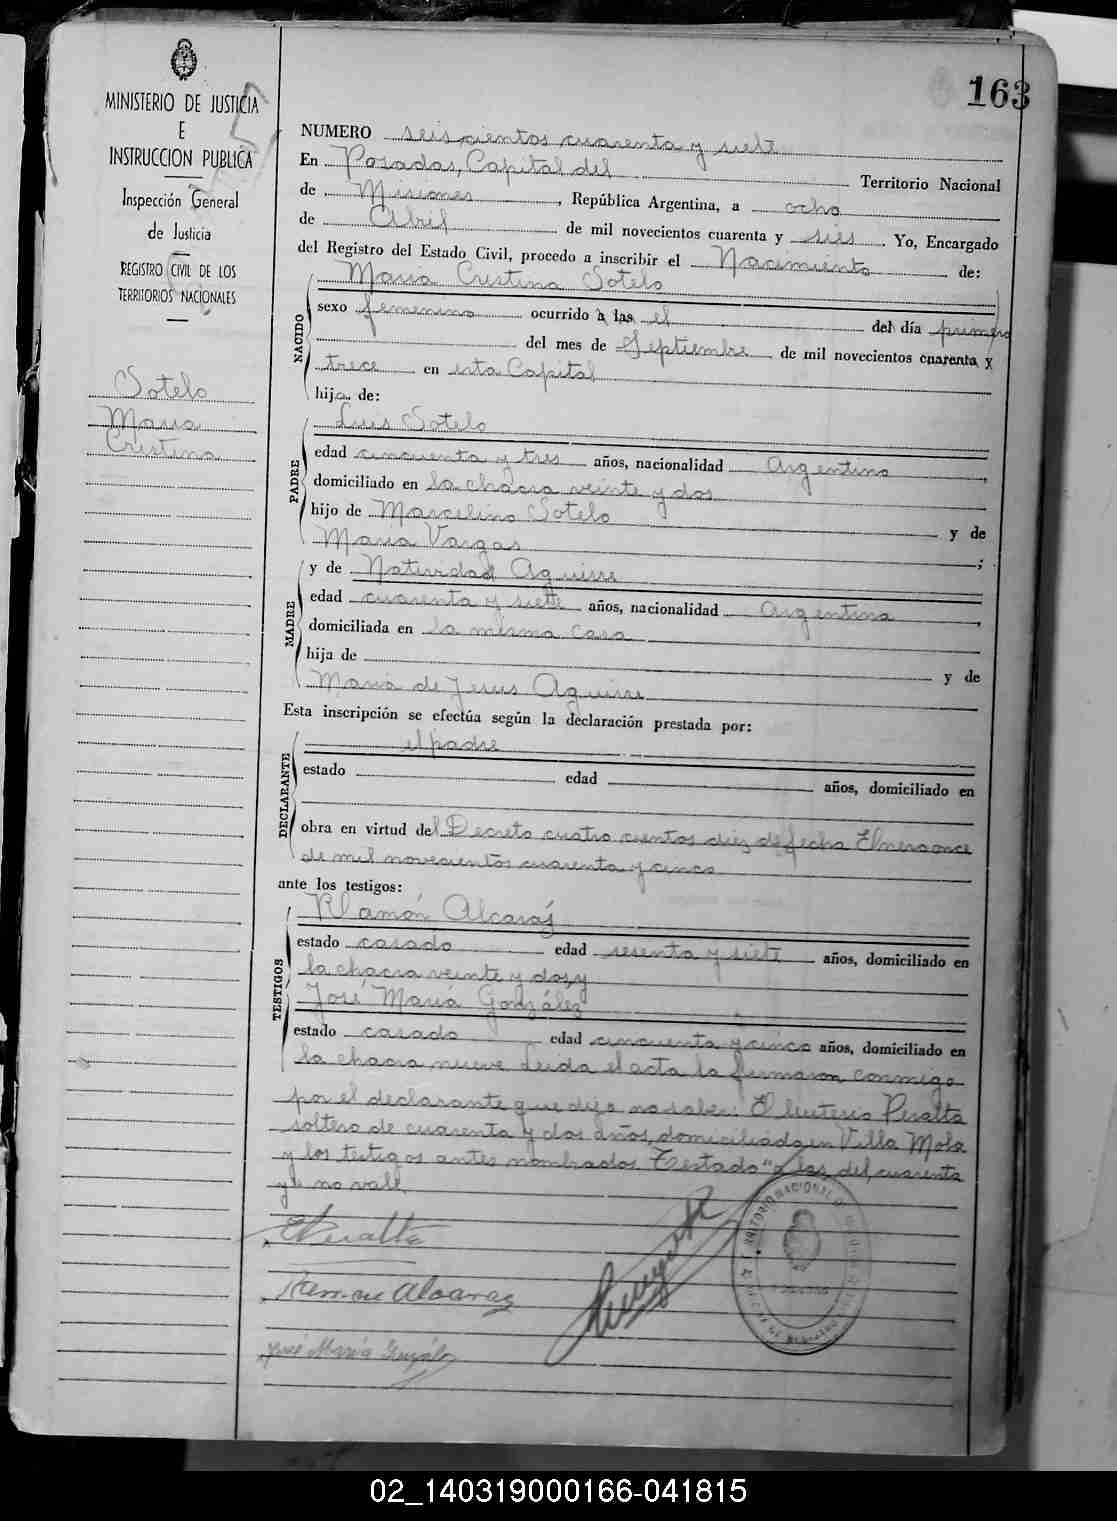 163
MINISTERIO DE JUSTICIA
E
INSTRUCCION PUBLICA
Inspección General
de Justicia
REGISTRO CIVIL DE LOS
TERRITORIOS NACIONALES
Sotelo
Maria
Cristina
NUMERO seiscientos cuarenta y siete
En Posadas, Capital del Territorio Nacional
de Misiones, República Argentina, a ocho
de Abril de mil novecientos cuarenta y seis Yo, Encargado
del Registro del Estado Civil, procedo a inscribir el Nacimiento de:
NACIDO
Maria Cristina Sotelo
sexo femenino ocurrido a las el del día primero
del mes de Septiembre de mil novecientos cuarenta y
trece en esta Capital
hija de:
PADRE
Luis Sotelo
edad cincuenta y tres años, nacionalidad Argentino,
domiciliado en la chacra veinte y dos
hijo de Marcelino Sotelo y de
Maria Vargas;
MADRE
y de Natividad Aguirre
edad cuarenta y siete años, nacionalidad Argentina,
domiciliada en la misma casa
hija de y de
Maria de Jesus Aguirre
Esta inscripción se efectúa según la declaración prestada por:
DECLARANTE
el padre
estado edad años, domiciliado en
obra en virtud del Decreto cuatro cientos diez de fecha Enero once
de mil novecientos cuarenta y cinco
ante los testigos:
TESTIGOS
Ramón Alcaráz
estado casado edad sesenta y siete años, domiciliado en
la chacra veinte y dos, y
José María González
estado casado edad cincuenta y cinco años, domiciliado en
la chacra nueve Leida el acta la firmaron conmigo
por el declarante que dijo no saber: Eleuterio Peralta
soltero de cuarenta y dos años, domiciliado en Villa Mola
y los testigos antes nombrados. Testado "a las, del, cuarenta
y" no vale.
EPeralta
Ramon Alcaraz
José María González
02_140319000166-041815